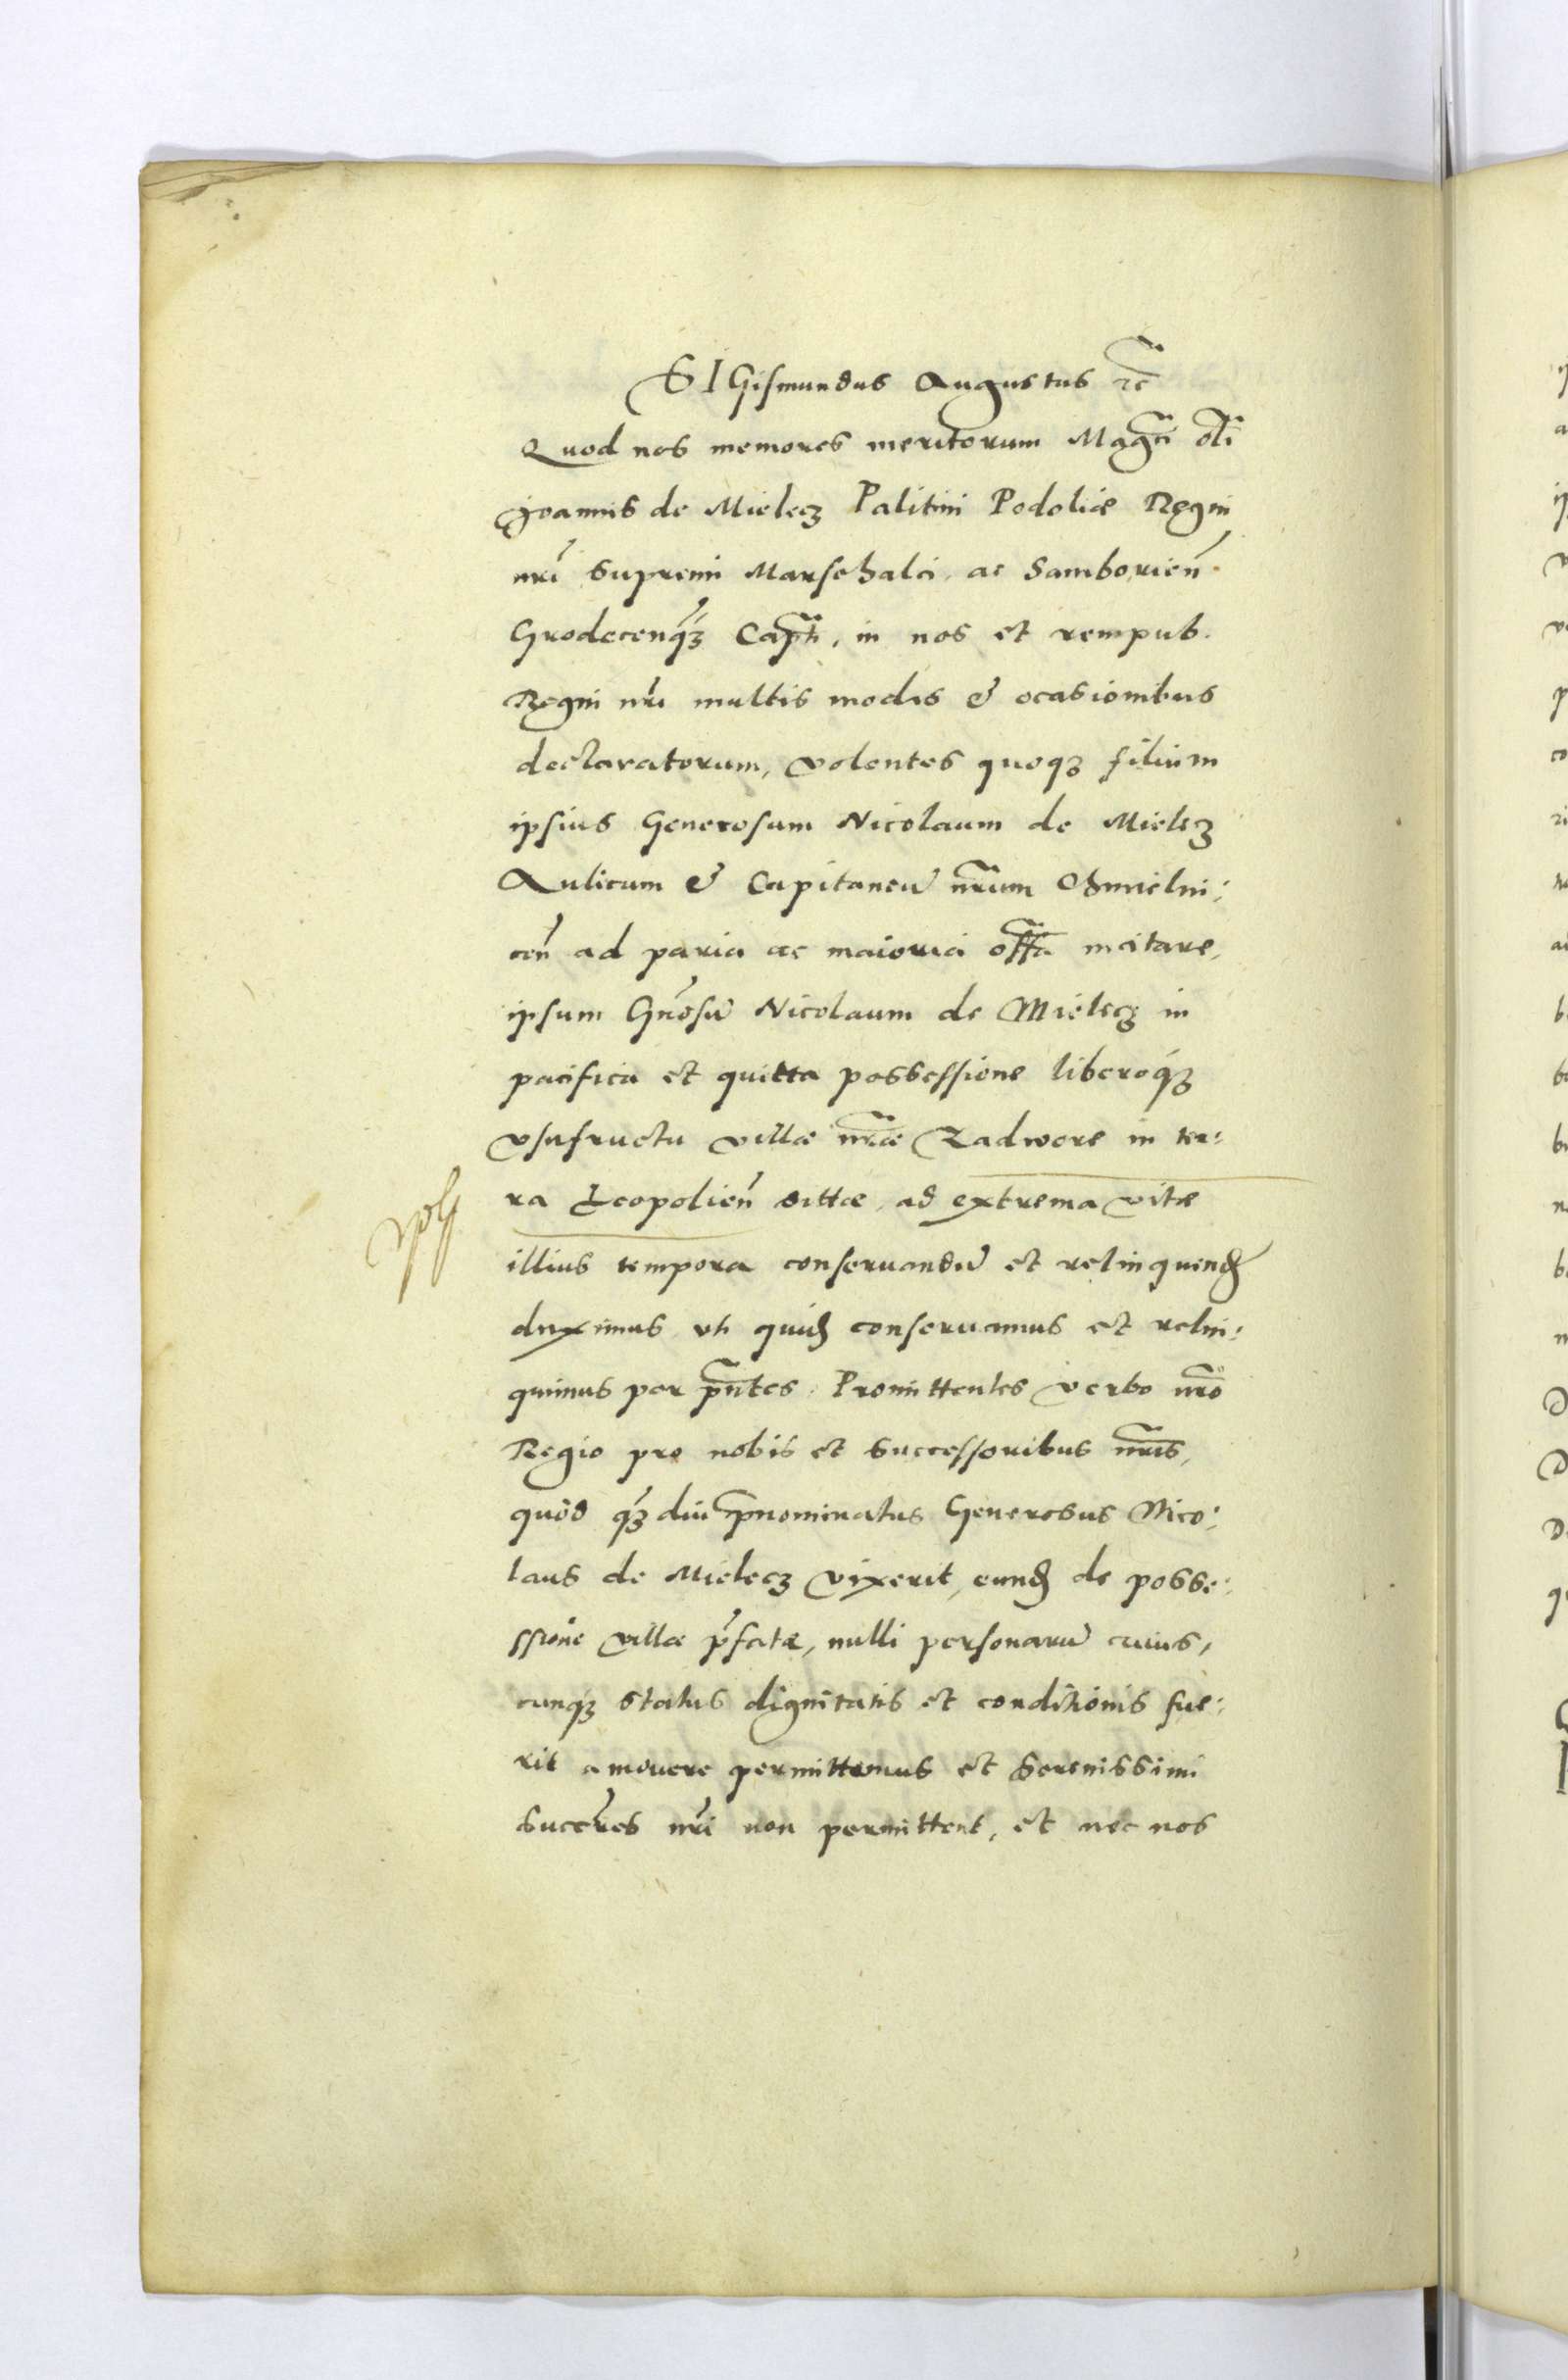 SIGismundus Augustus rc̃
Quod nos memores meritorum Magci̅ oli̅
Joannis de Mielecz Palitini Podoliæ Regni
nri̅ Supremi Marschalci, ac Samborień
Grodecenqz Capti̅, in nos et rempub.
Regni nri̅ multis modis & ocasionibus
declaratorum, volentes quoqz filium
ipsius Generosum Nicolaum de Mielecz
Aulicum & Capitaneū nr̅um Chmielni:
ceń ad paria ac maiora offa̅ incitare,
ipsum Gn̅osū Nicolaum de Mielecz in
pacifica et quitta possessione liberoqz
vsufructu villæ nr̅æ Zadwore in ter:
ra Leopolień sittæ, ad extrema vitæ
illius tempora conseruandū et relinquend
duximus vti quid conseruamus et relin:
quimus per pn̅tes. Promittentes verbo nr̅o
Regio pro nobis et successoribus nr̅is,
quòd qz diu pnominatus Generosus Nico:
laus de Mielecz vixerit, eund de posse:
ssione villæ pfatæ, nulli personarū cuius,
cunqz status dignitatis et conditionis fue:
rit amouere permittemus et Serenissimi
Succr̅es nri̅ non permittent, et nec nos